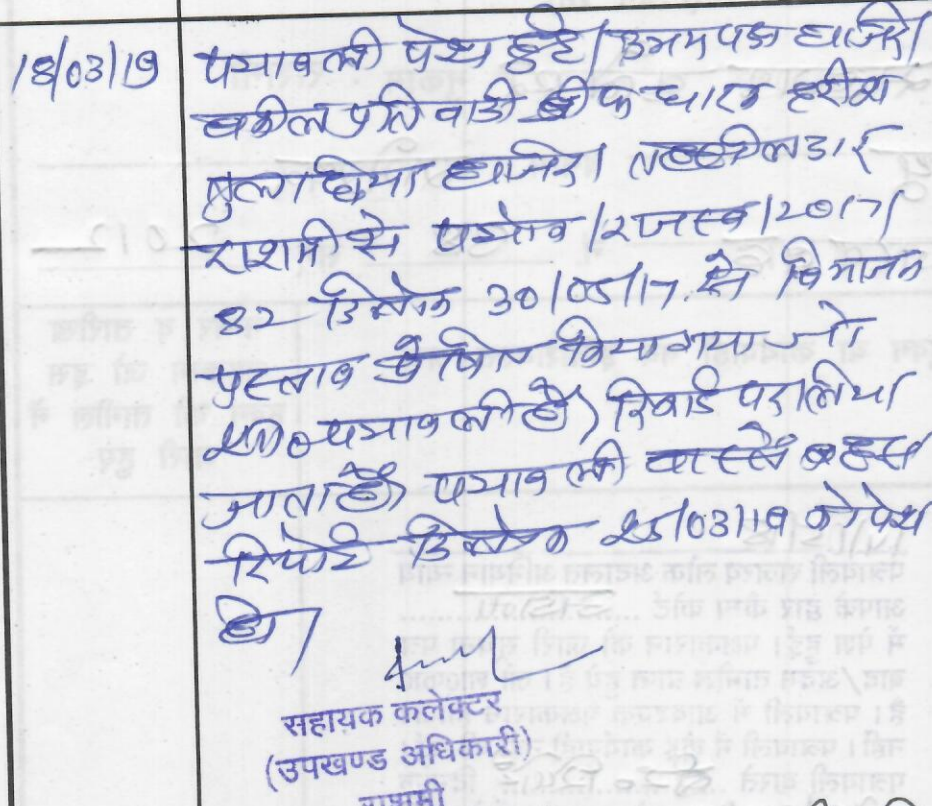 18/03/19 पत्रावली पेश हुई। उभय पक्ष हाजिर।
वकील प्रतिवादी हरीश
हाजिर। तहसीलदार
राशमी से पत्रांक/राजस्व/2017/
82 दिनांक 30/05/17 से विभाजन
प्रस्ताव प्रेषित किया गया जो
पत्रावली है। रिकार्ड पर लिया
जाता है। पत्रावली वास्ते बहस
रिपोर्ट दिनांक 25/03/19 को पेश
हो।
सहायक कलेक्टर
(उपखण्ड अधिकारी)
राशमी